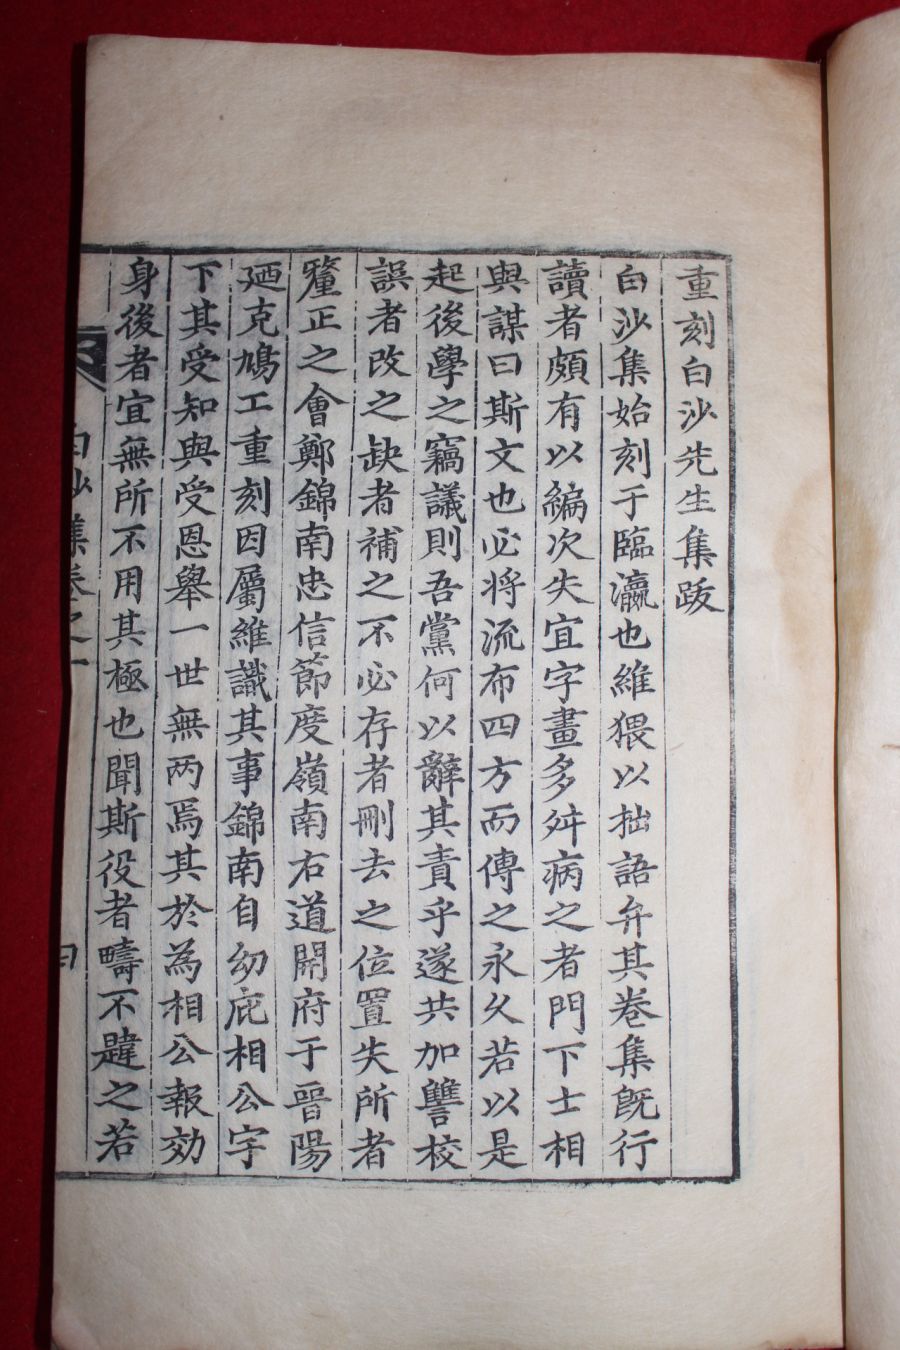 重刻白沙先生集跋
白沙集始刻于臨瀛也維猥以拙語弁其卷集旣行
讀者頗有以編次失宜字畫多舛病之者門下士相
與謀曰斯文也必將流布四方而傳之永久若以是
起後學之竊議則吾黨何以辭其責乎遂共加讐校
誤者改之缺者補之不必存者刪去之位置失所者
釐正之會鄭錦南忠信節度嶺南右道開府于晉陽
廼克鳩工重刻因屬維識其事錦南自幼庇相公宇
下其受知與受恩舉一世無两焉其於為相公報効
身後者宜無所不用其極也聞斯役者疇不韙之若
白沙集卷之一